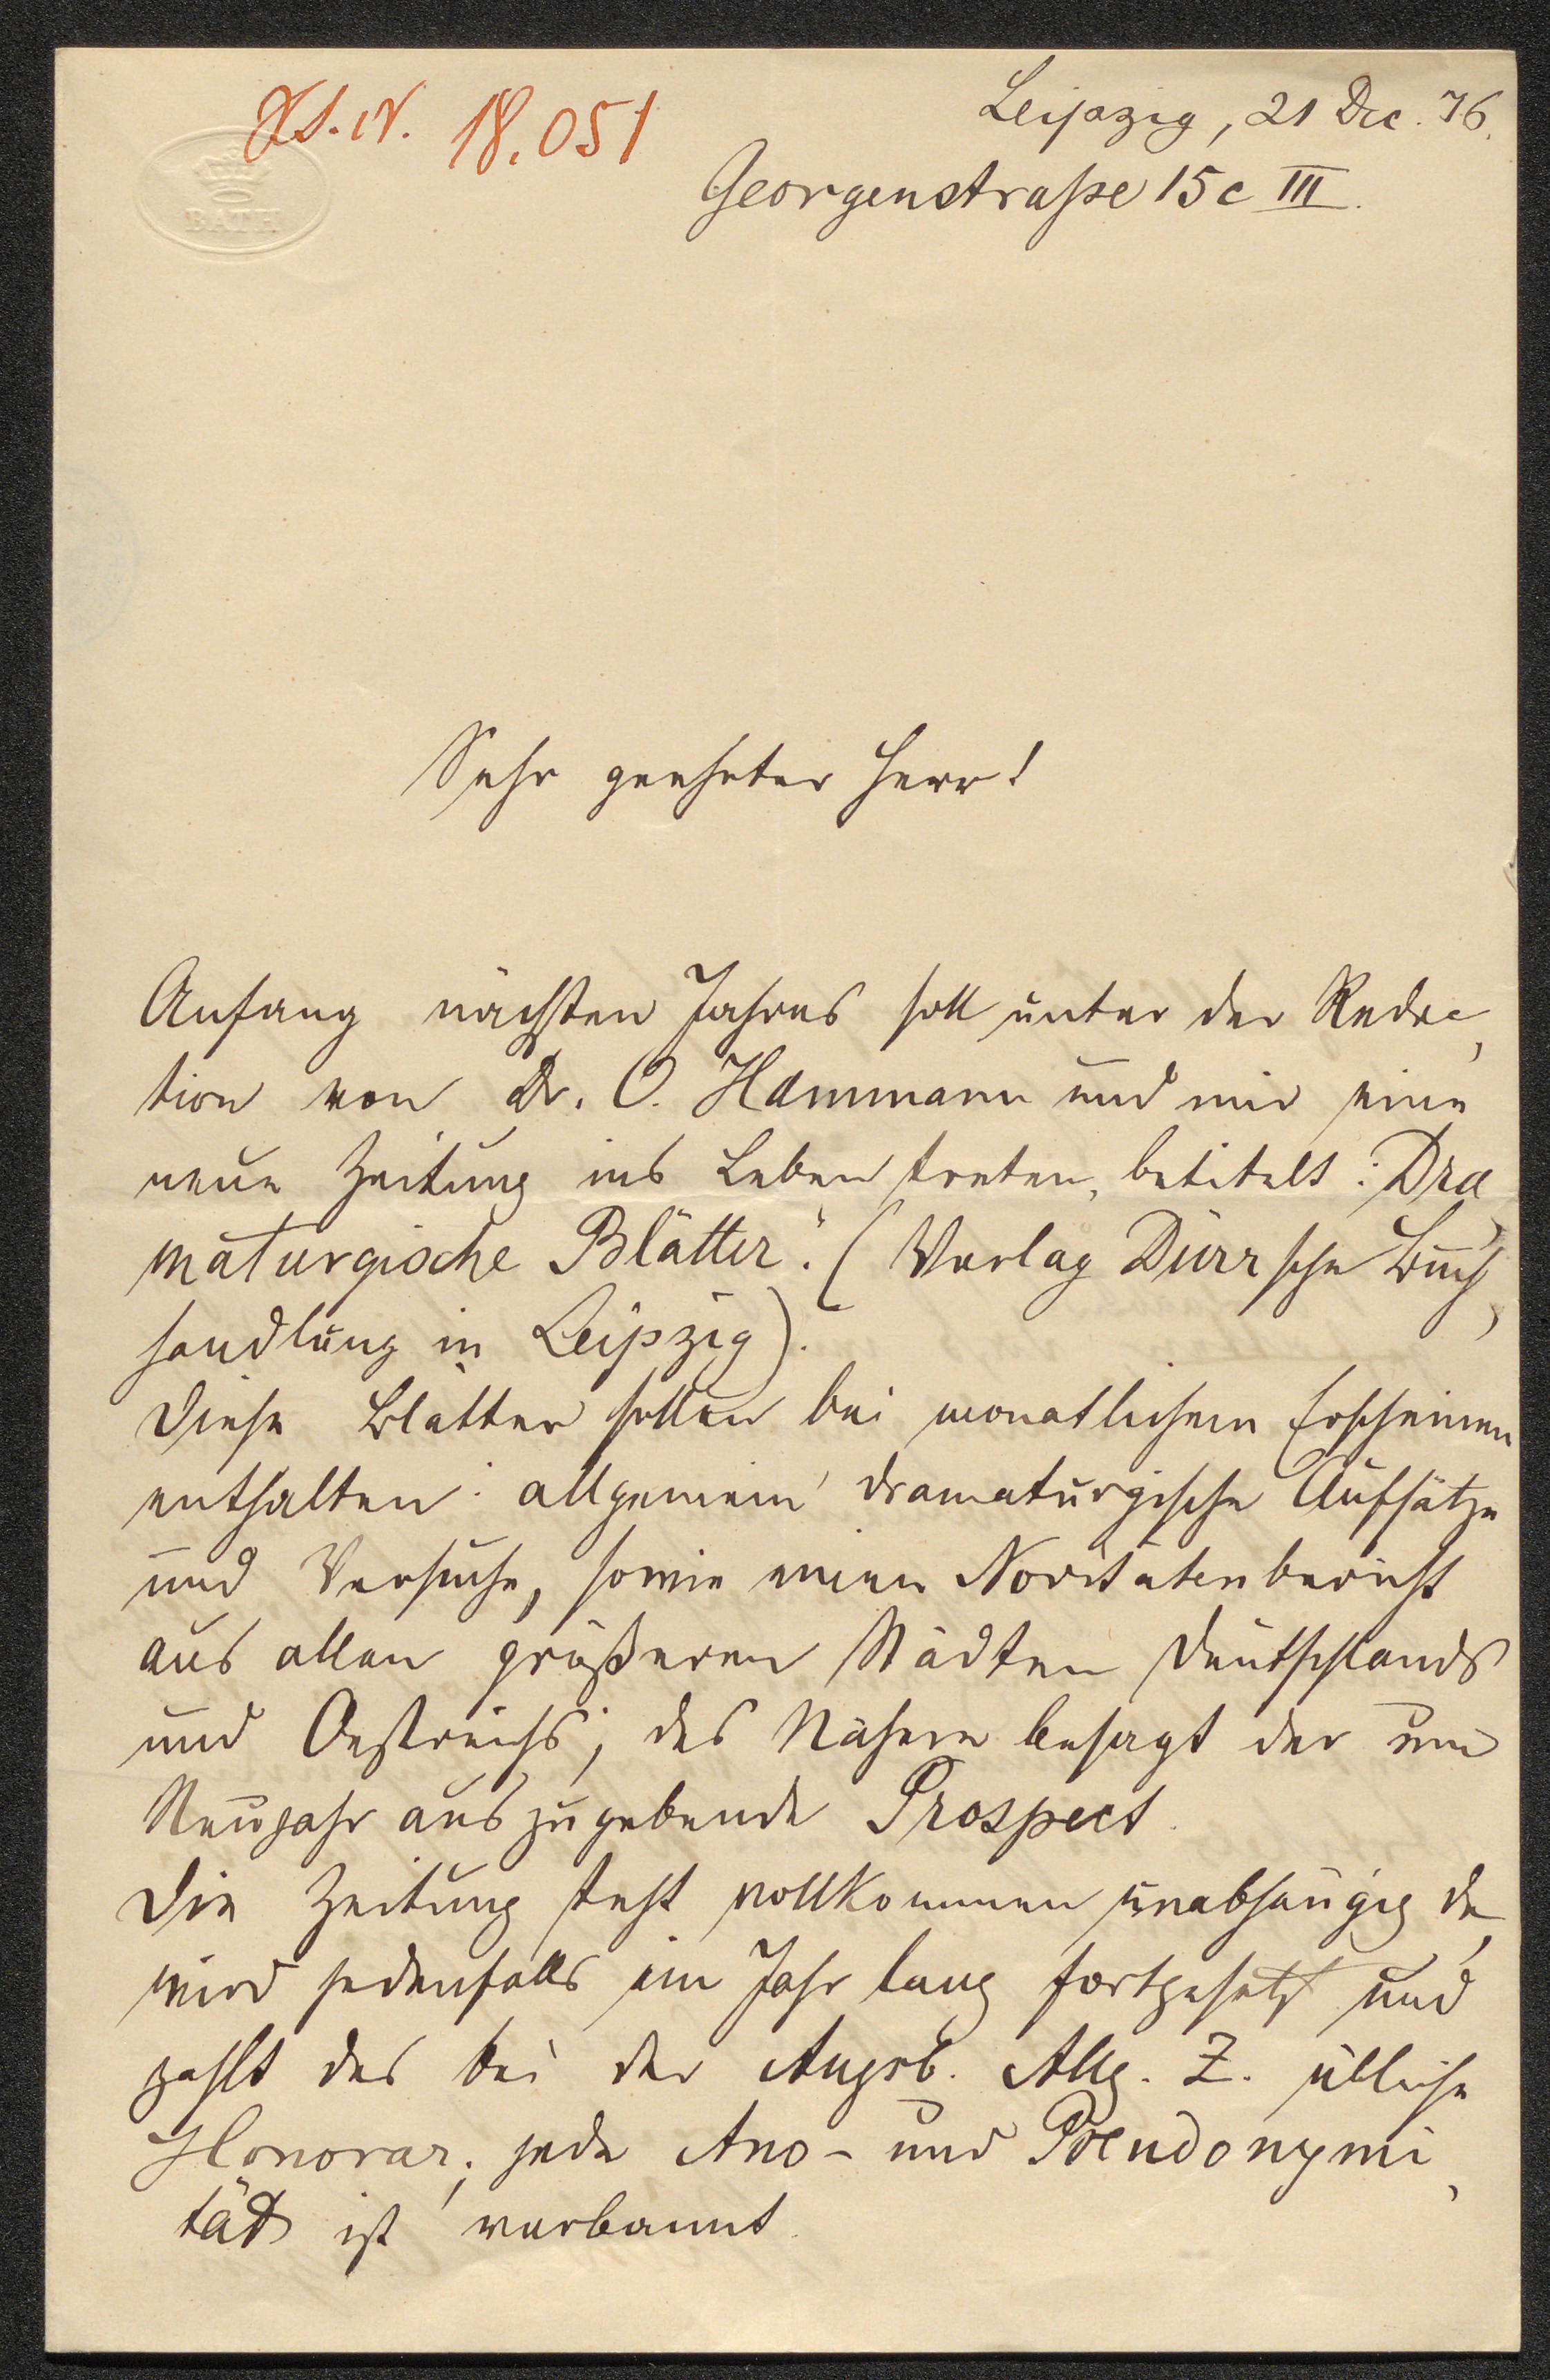 H.I.N. 18.051
Leipzig, 21 Dec. 76.
Georgenstraße 15c III.
BATH
Sehr geehrter Herr!
Anfang nächsten Jahres soll unter der Redac
tion von Dr. O. Hammann und mir eine
neue Zeitung ins Leben treten, betitelt: Dra
maturgische Blätter". (Verlag Dürrsche Buch
handlung in Leipzig).
Diese Blätter sollen bei monatlichem Erscheinen
enthalten: allgemein dramaturgische Aufsätze
und Versuche, sowie einen Novitätenbericht
aus allen größeren Städten Deutschlands
und Oestreichs; das Nähere besagt der um
Neujahr auszugebende Prospect.
Die Zeitung steht vollkommen unabhängig da,
wird jedenfalls ein Jahr lang fortgesetzt und
zahlt das bei der Augsb. Allg. Z. übliche
Honorar; jede Ano- und Pseudonymi
tät ist verbannt.